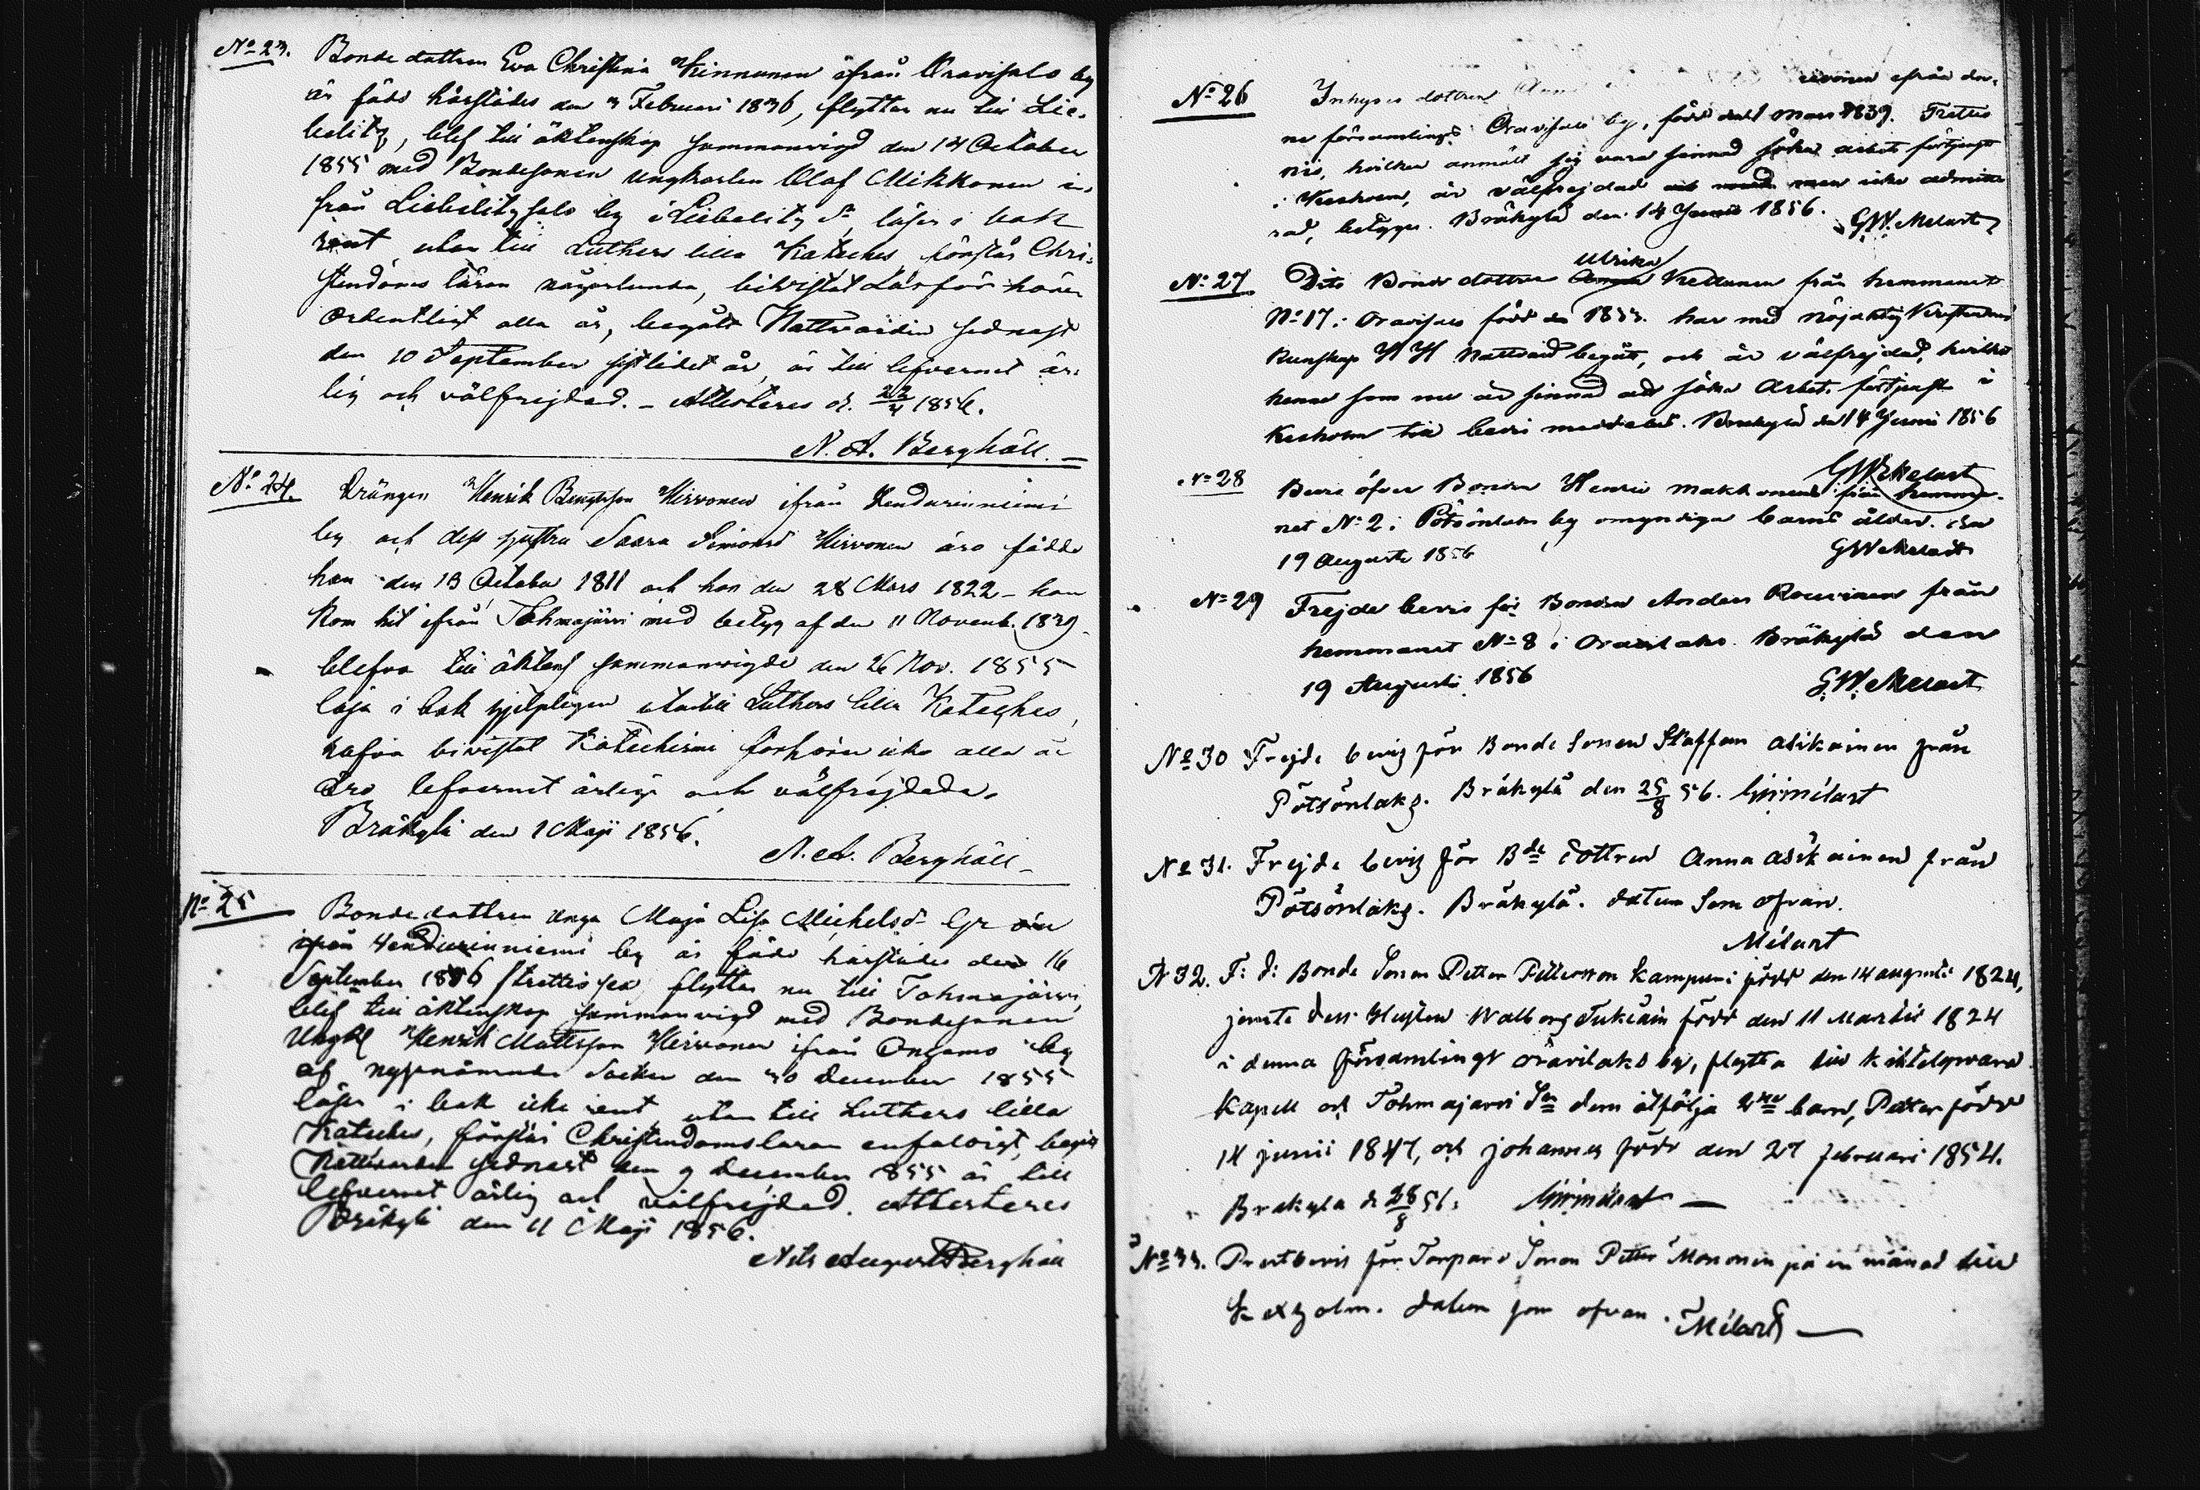 No 23. Bonde dottren Eva Christina Kinnunen ifrån Oravisalo by
är född härstädes den 3 Februari 1836, flyttar nu till Lie-
belitz, blef till äktenskap sammanvigd den 14 October
1855 med Bondesonen ungkarlen Olof Mikkonen i-
från Liebelitzsalo by i Liebelitz Sn, läser i bok
rent utan till Luthers lilla Kateches, förstår Chri-
stendoms läran någorlunda, bivistat Läsförhören
ordentligt alla år, begått Nattvarden sednast
den 10 September sistlidet år, är till lefvernet är-
lig och välfrejdad. - Attesteras d. 22/4 1856.
N. A. Berghäll. -
No 24. Drängen Henrik Bengtsson Hirvonen ifrån Hendurinniemi
by och dess hustru Saara Simonsd Hirvonen äro födde
han den 13 October 1811 och hon den 28 Mars 1822 - han
kom hit ifrån Tohmajärvi med betyg af den 11 Novemb. 1839
blefvo till äktensk sammanvigde den 26 Nov. 1855
läsa i bok hjelpligen utantill Luthers lilla Kateches,
hafva bivistat Katechismi förhören icke alla år
äro lefvernet ärlige och välfrejdade.
Bräkylä den 1 Maji 1856.
N. A. Berghäll -
No 25 Bonde dottren unga Maja Lisa Michelsd
ifrån Hendurinniemi by är född härstädes den 16
September 1836 /trettio sex/ flyttar nu till Tohmajärvi,
blef till äktenskap sammanvigd med Bondesonen
Ungkl Henrik Mattsson Hirvonen ifrån Onkamo by
af nyssnämnda Socken den 30 December 1855
läser i bok icke rent utan till Luthers lilla
Kateches, förstår Christendomsläran enfaldigt, begått
Nattvarden sednast den 9 December 1855 är till
lefvernet ärlig och välfrejdad. Attesteres
Bräkylä den 11 Maji 1856.
Nils August Berghäll
No 26 Inhyses dottren Anna ifrån den-
ne församlings Oravisalo by, född den 1 Mars 1839. Trettio
nio, hvilken anmält sig vara sinnad söka arbets förtjenst
i Kexholm, är välfrejdad men icke admitte
rad, betygar. Bräkylä den 14 Junii 1856. GW. Melart
Ulrika
No 27 Dito Bonde dottren Anna Kettunen från hemmanet
No 17 i Oravisalo född år 1833. har med nöjaktig Kristendoms
kunskap H H Nattvard begått, och är välfrejdad, hvilket
henne som nu är sinnad att söka Arbets förtjenst i
Kexholm till bevis meddelas. Bräkylä den 14 Junii 1856
GW Melart
No 28 Bevis öfver Bonden Henric Makkonens från hemma-
net No 2 i Pötsönlaks by omyndiga barns ålder.
19 Augusti 1856 GW Melart
No 29 Frejde bevis för Bonden Anders Rouvinen från
hemmanet No 8 i Oravilaks. Bräkylä den
19 Augusti 1856
G.W. Melart
No 30 Frejde bevis för Bonde Sonen Staffan Asikainen från
Pötsönlaks. Bräkylä den 25/8 56. GW Melart
No 31. Frejde bevis för Bde dottren Anna Asikainen från
Pötsönlaks. Bräkylä. datum Som ofvan.
Melart
N 32. F: d: Bonde Sonen Petter Pettersson Kampuri född den 14 augusti 1824,
jemte dess Hustru Walborg Tukiain född den 11 Martii 1824
i denna församlings Oravilaks by, flytta till Kiktelysvaara
Kapell och Tohmajärvi Sn dem åtfölja 2ne barn, Petter född
14 junii 1847, och johannes född den 27 februari 1854.
Bräkylä d 28/8 56. GW Melart -
No 33. Prestbevis för Torpare Sonen Petter Mononen på en månad till
Kexholm. datum som ofvan. Melart -